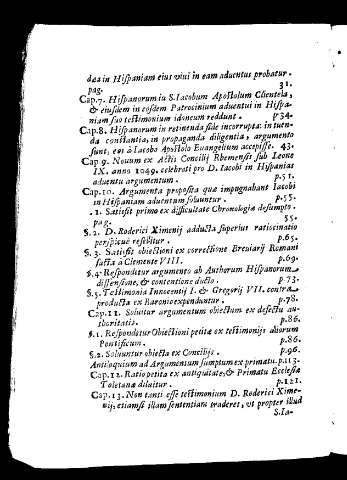 dea in Hispaniam eius viui in eam aduentus probatur.
pag. 31.
Cap.7. Hispanorum in S. Iacobum Apostolum Clientela,
& eiusdem in eosdem Patrocinium aduentui in Hispa-
niam suo testimonium idoneum reddunt. p.34.
Cap.8. Hispanorum in retinenda fide incorrupta: in tuen-
da constantia, in propaganda diligentia, argumento
sunt, eos à Iacobo Apostolo Euangelium accepisse. 43.
Cap 9. Nouum ex Actis Concilij Rhemensis sub Leone
IX. anno 1049. celebrati pro D. Iacobi in Hispanias
aduentu argumentum. p.51.
Cap.10. Argumenta proposita quæ impugnabant Iacobi
in Hispaniam aduentum soluuntur. p.55.
. 1. Satisfit primo ex difficultate Chronologiæ desumpto.
pag. 55.
§.2. D. Roderici Ximenij adducta superius ratiocinatio
perspicue refellitur. p.65.
§. 3. Satisfit obiectioni ex correctione Breuiarij Romani
facta à Clemente VIII. p.69.
§.4. Respondetur argumento ab Authorum Hispanorum
dissensione, & contentione ducto. p.73.
§.5. Testimonia Innocentij I. & Gregorij VII. contra
producta ex Baronio expenduntur. p.78.
Cap.11. Soluitur argumentum obiectum ex defectu au-
thoritatis. p.86.
§.1. Respondetur Obiectioni petitæ ex testimonijs aliorum
Pontificum. p.86.
§.2. Soluuntur obiecta ex Concilijs. p.96.
Antiquium ad Argumentum sumptum ex primatu. p.113.
Cap.12. Ratio petita ex antiquitate, & Primatu Ecclesiæ
Toletanæ diluitur. p.121.
Cap.13. Non tanti esse testimonium D. Roderici Xime-
nij, etiamsi illam sententiam traderet, vt propter illud
S.Ia-